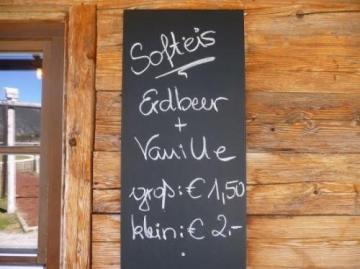 Softeis
Erdbeer
+
Vanille
groß: € 1,50
klein: € 2.-